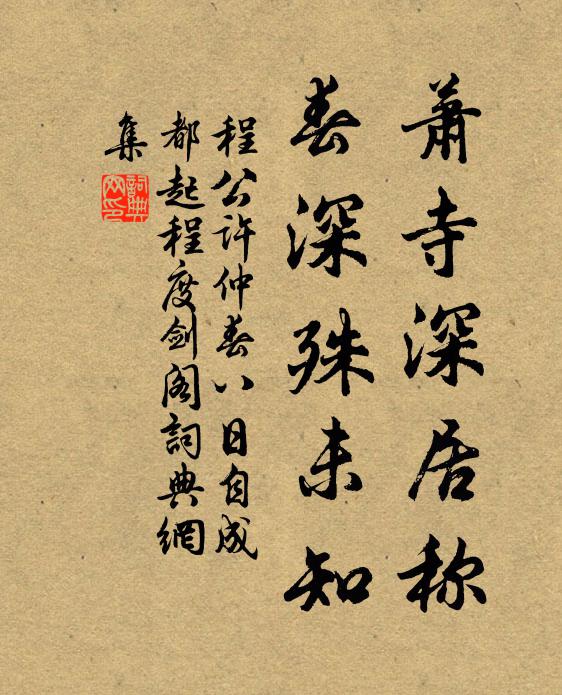 萧寺深居称
春深殊未知
程公许仲春八日自成
都起程度剑阁詞典網
集
詞典
网印